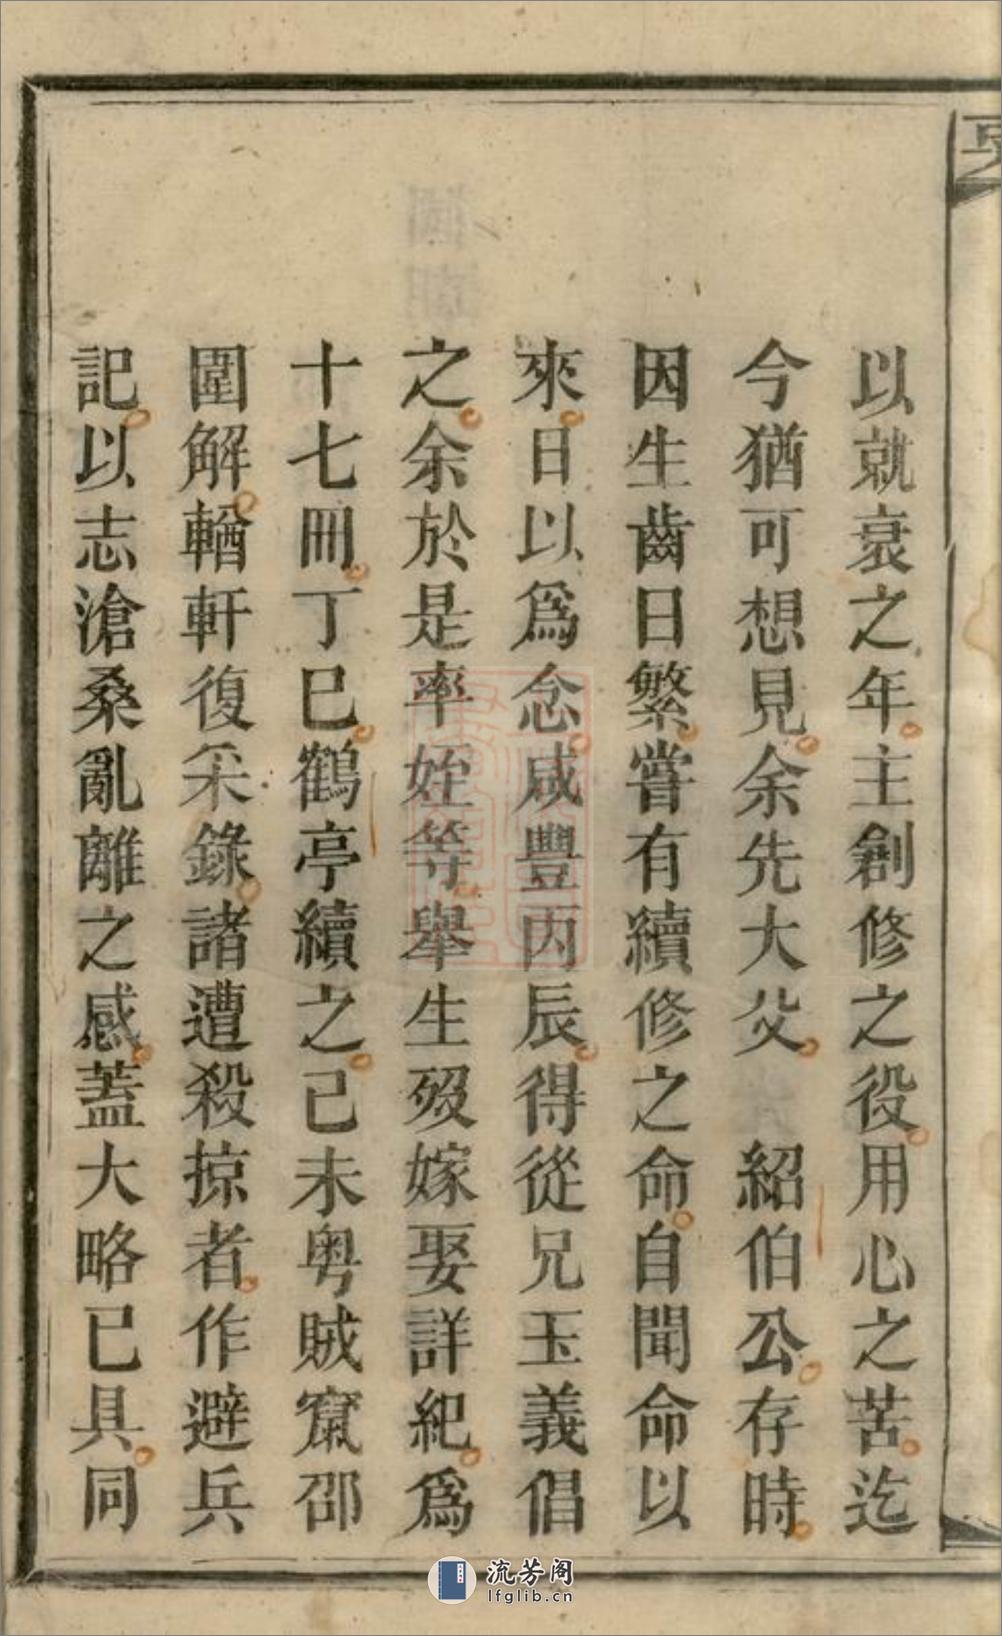 以就衰之年主創修之役用心之苦迄
今猶可想見余先大父　紹伯公存時
因生齒日繁嘗有續修之命自聞命以
來日以為念咸豐丙辰得從兄玉義倡
之余於是率姪等舉生歿嫁娶詳紀為
十七冊丁巳鶴亭續之己未粵賊竄邵
圍解輶軒復采錄諸遭殺掠者作避兵
記以志滄桑亂離之感蓋大略已具同
流芳阁
lfglib.cn